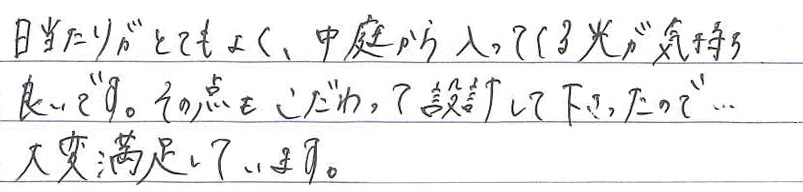 日当たりがとてもよく、中庭から入ってくる光が気持ち
良いです。その点をこだわって設計して下さったので…
大変満足しています。